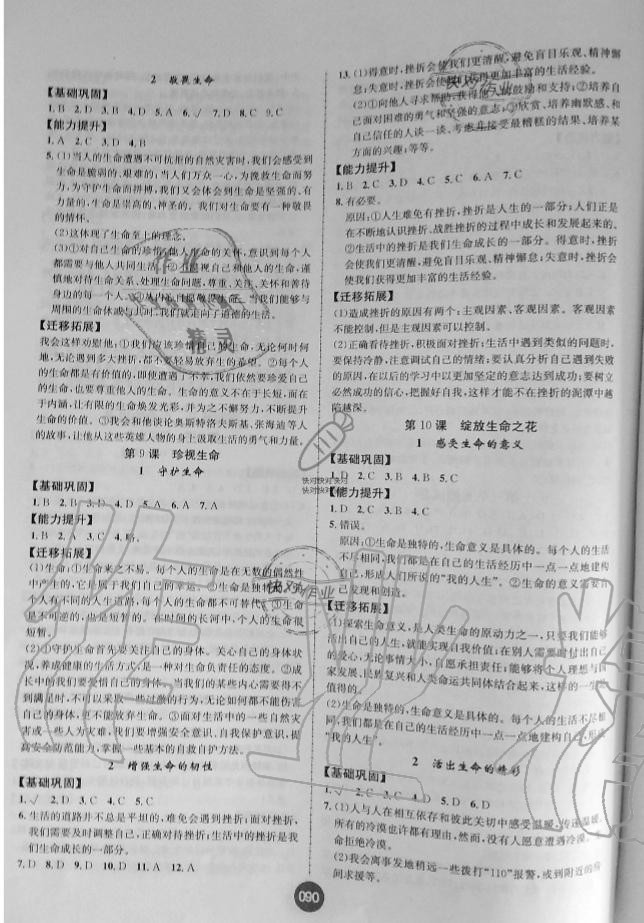 2 敬畏生命
【基础巩固】
1. B 2. D 3. B 4. D 5. A 6. √ 7. D 8. C 9. C
【能力提升】
1. A 2. C 3. D 4. C
5. (1)当人的生命遭遇不可抗拒的自然灾害时,我们会感受到
生命是脆弱的、艰难的。当人们万众一心,为挽救生命而努
力,为守护生命而拼搏,我们又会体会到生命是坚强的、有力
量的,生命是崇高的、神圣的。我们对生命要有一种敬畏
的情怀。
(2)这体现了生命至上的理念。
(3)①对自己生命的珍惜,
人都需要与他人共同生活。②
慎地对待生命关系、处理生命问题,尊重、关注、关怀和善待
身边的每一个人。③从内心自愿地敬畏生命。
周的生命休戚与共时,我们就在走向道德的生活。
【迁移拓展】
我会这样劝慰他:我们应该珍惜自己的生命,无论何时何
地,无论遇到多大挫折,都不要轻易放弃生的希望。②每个
人的生命都是有价值的,即使遭遇了不幸,我们依然要珍爱自己
的生命,也要尊重他人的生命。生命的意义不在于长短,而在
于内涵,让有限的生命焕发光彩,并为之不懈努力,不断地
实现人生意义。③我会和他谈论奥斯特洛夫斯基、张海迪等人
的故事,让他从这些英雄人物的身上汲取生活的勇气和力量。
第9课 珍视生命
1 守护生命
【基础巩固】
1. B 2. B 3. D 4. A 5. D 6. D 7. A
【能力提升】
1. A 2. B 3. C 4. 略。
【迁移拓展】
(1)①生命来之不易。
中产生的,它是属于我们自己的幸运。②生命是独特的。
个人有不同的人生道路,每个人的生命都不可替代。③生命
是不可逆的,也是短暂的。在时间的长河中,个人的生命很
短暂。
(2)①守护生命首先要关注自己的身体。关心自己的身体状
况,养成健康的生活方式,是一种对生命负责任的态度。②成
长中的我们要爱惜自己的身体。当我们的某些内心需要得不
到满足时,不可以采取一些过激的行为,无论如何都不能伤害
自己的身体,更不能放弃生命。③面对生活中的一些自然灾
害或一些人为灾难,我们要增强安全意识、自我保护意识,提
高安全防范能力,掌握一些基本的自救自护方法。
2 增强生命的韧性
【基础巩固】
1. √ 2. D 3. C 4. C 5. D
6. 生活的道路并不总是平坦的,难免会遇到挫折;面对挫折,
我们需要及时调整自己,正确对待挫折;生活中的挫折是我
们生命成长的一部分。
7. D 8. D 9. C 10. A 11. A 12. A
13. (1)得意时,挫折会使我们更清醒,避免盲目乐观、精神懈
怠;失意时,挫折会使我们获得更加丰富的生活经验。
(2)①向他人寻求帮助,获得他人的鼓励和支持;②培养自
己面对挫折的勇气和坚强的意志;③欣赏、培养幽默感,和
自己信任的人谈一谈、考虑并接受最糟糕的结果、培养某方
面的兴趣;等等。
【能力提升】
1. B 2. C 3. D 4. C 5. C 6. A 7. C
8. 有必要。
原因:①人生难免有挫折,挫折是人生的一部分;人们正是
在不断地认识挫折、战胜挫折的过程中成长和发展起来的。
②生活中的挫折是我们生命成长的一部分。得意时,挫折
会使我们更清醒,避免盲目乐观、精神懈怠;失意时,挫折会
使我们获得更加丰富的生活经验。
【迁移拓展】
(1)造成挫折的原因有两个:主观因素、客观因素。客观因素
不能控制,但是主观因素我们可以控制。
(2)正确看待挫折,注意总结。生活中遇到类似的问题时,
要保持冷静,注意调试自己的情绪;要认真分析自己遇到失败
的原因,在以后的学习中以更加坚定的意志达到成功;要树立
必然成功的信心,把握好自我,这样才能不在挫折的泥潭中越
陷越深。
第10课 绽放生命之花
1 感受生命的意义
【基础巩固】
1. D 2. C 3. B 4. D 5. A 6. C
【能力提升】
1. B 2. D 3. C 4. C
5. 错误。
原因:①生命是独特的,生命意义是具体的。每个人的生活
不尽相同,每个人都是在自己的生活经历中一点一点地建构
自己,形成人们所说的“我的人生”。②生命的意义需要自己
发现和创造。
【迁移拓展】
(1)①探索生命意义,是人类生命的原动力之一。只要我们能够
活出自己的人生,就能实现自我价值;在别人需要帮助时付出自己
的爱心,无论事情大小,自愿承担责任;能够将个人理想与国
家发展、民族复兴和人类命运共同体结合起来,这样的一生就是
值得的。
(2)生命是独特的,生命意义是具体的。每个人的生活不尽相
同,我们都是在自己的生活经历中一点一点地建构自己,形成
“我的人生”。
2 活出生命的精彩
【基础巩固】
1. √ 2. D 3. D 4. C 5. D 6. D
7. (1)人与人在相互依存和彼此关切中感受温暖,传递温暖。
所有的冷漠也许都有理由,然而,没有人愿意遭遇冷漠。
(2)我会离事发地稍远一些拨打“110”报警,或到附近的房
间求援等。
090